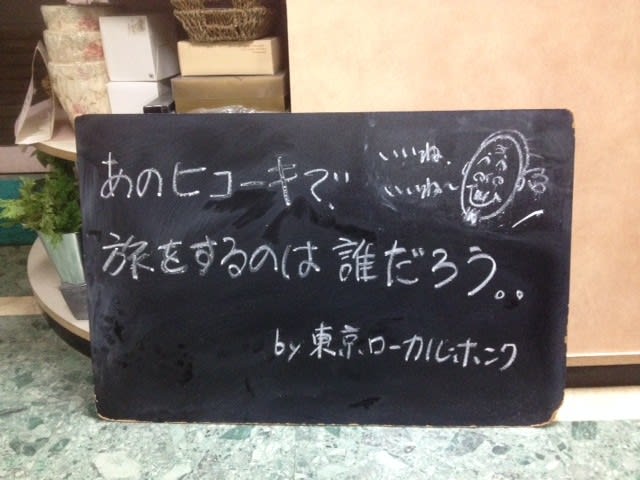 あのヒコーキで、
いいね、
いいね〜
旅をするのは誰だろう。。
by 東京ローカル・ホンク